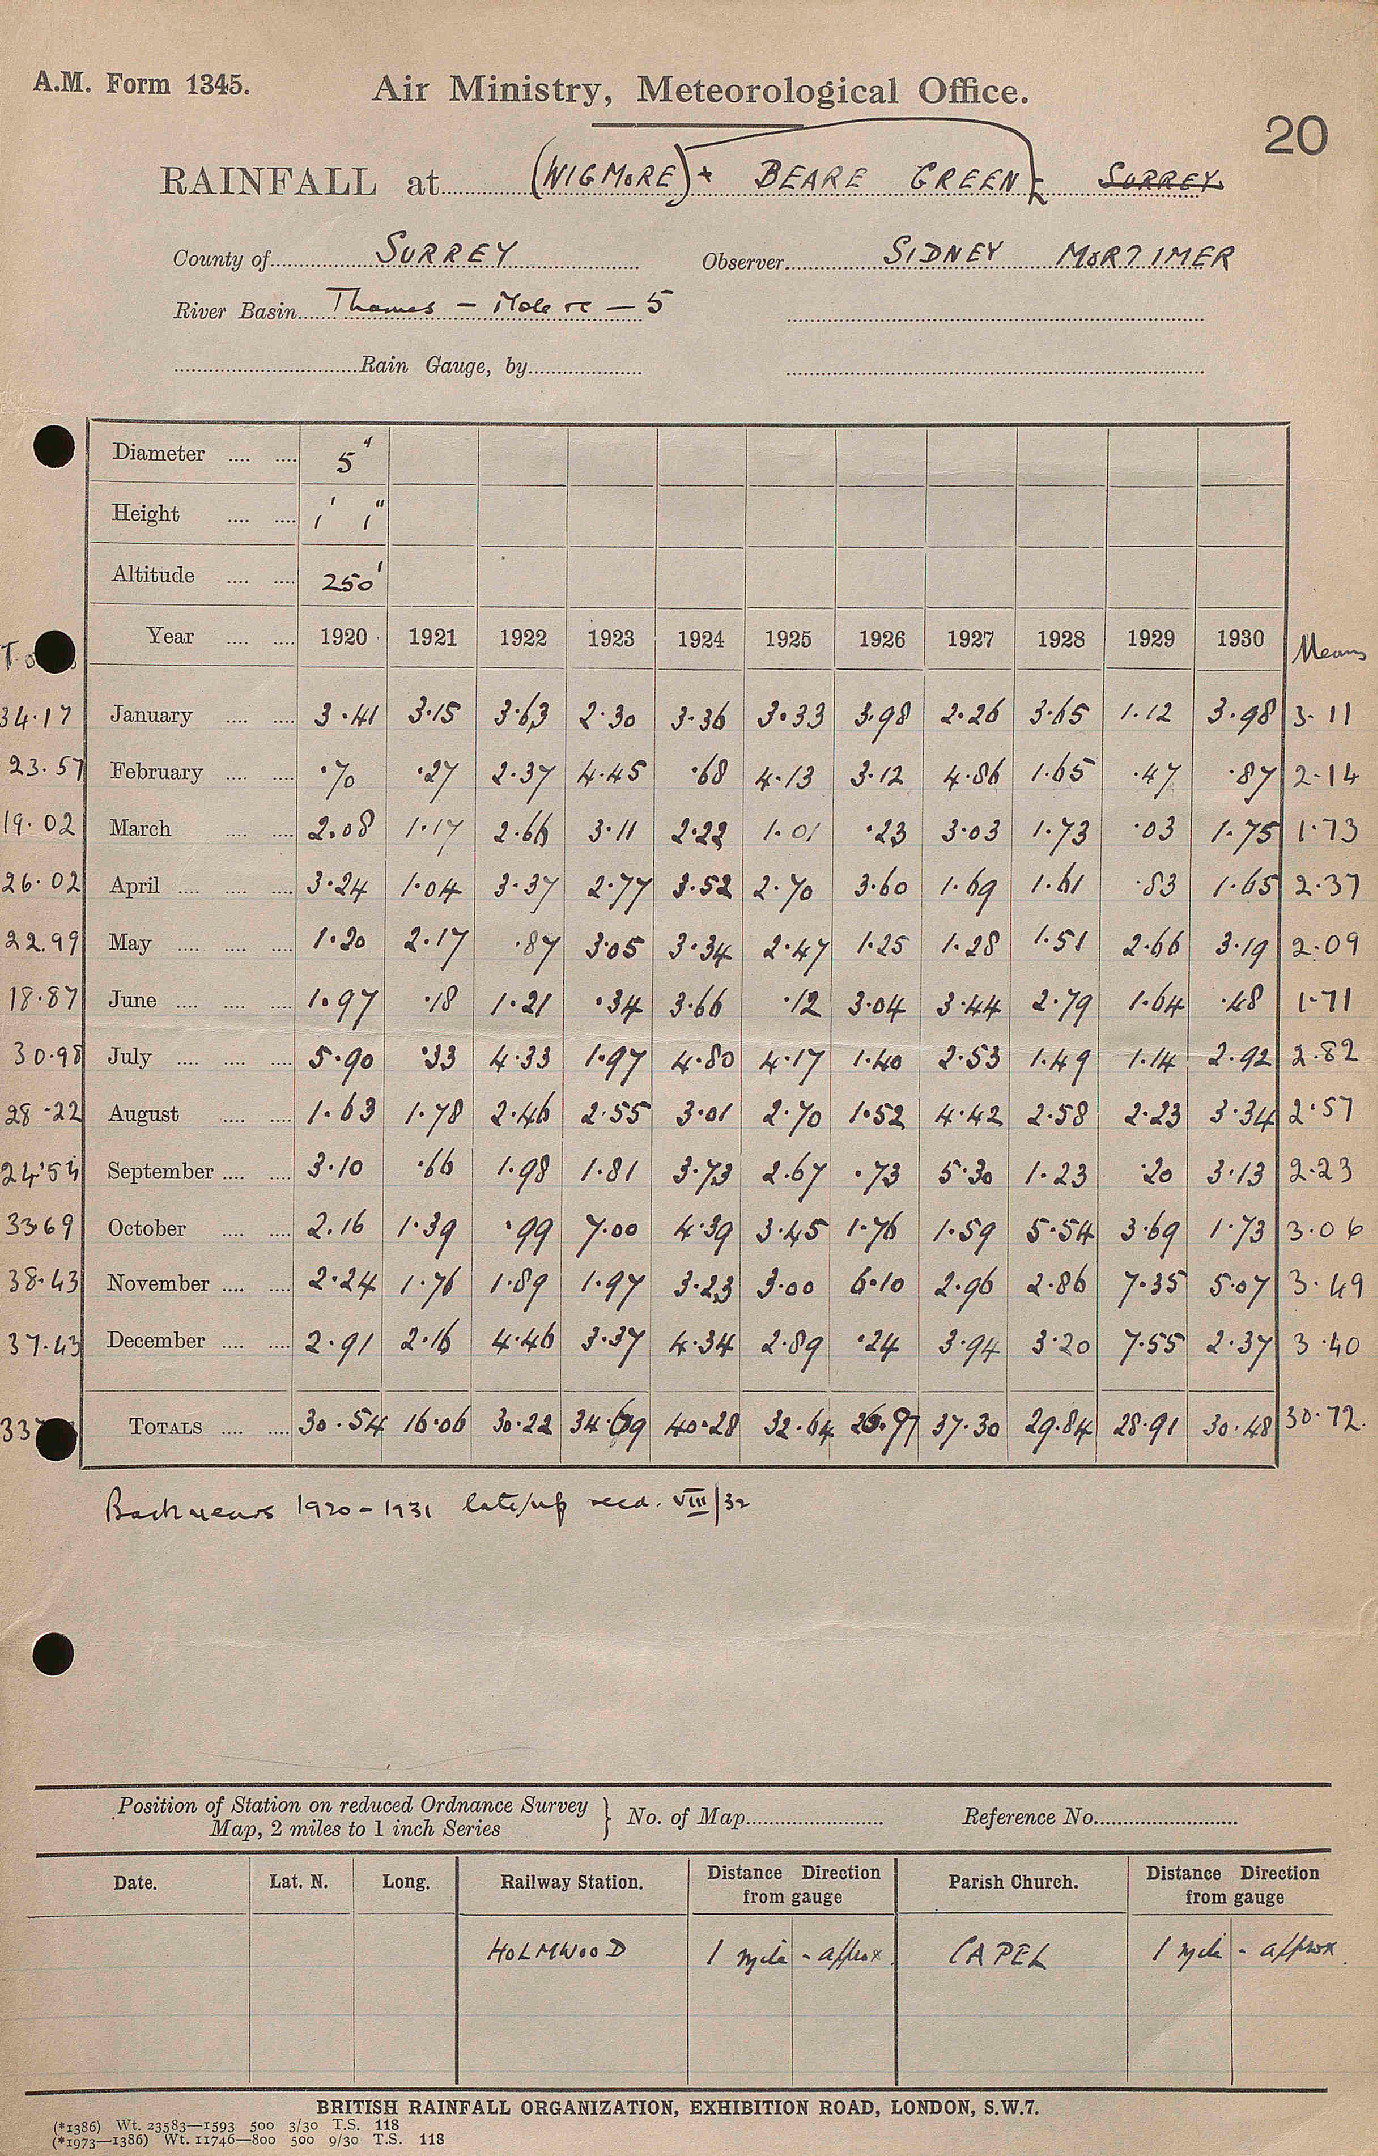 A.M. Form 1345.
Air Ministry, Meteorological Office.
20
RAINFALL at (WIGMORE) * BEARE GREEN SURREY
County of SURREY Observer SIDNEY MORTIMER
River Basin Thames — Mole rc — 5
Rain Gauge, by
Diameter 5"
Height 1' 1"
Altitude 250'
Year 1920 1921 1922 1923 1924 1925 1926 1927 1928 1929 1930 Means
34.17 January 3.41 3.15 3.63 2.30 3.36 3.33 3.98 2.26 3.65 1.12 3.98 3.11
23.57 February .70 .27 2.37 4.45 .68 4.13 3.12 4.86 1.65 .47 .87 2.14
19.02 March 2.08 1.17 2.66 3.11 2.22 1.01 .23 3.03 1.73 .03 1.75 1.73
26.02 April 3.24 1.04 3.37 2.77 3.52 2.70 3.60 1.69 1.61 .83 1.65 2.37
22.99 May 1.20 2.17 .87 3.05 3.34 2.47 1.25 1.28 1.51 2.66 3.19 2.09
18.87 June 1.97 .18 1.21 .34 3.66 .12 3.04 3.44 2.79 1.64 .48 1.71
30.98 July 5.90 .33 4.33 1.97 4.80 4.17 1.40 2.53 1.49 1.14 2.92 2.82
28.22 August 1.63 1.78 2.46 2.55 3.01 2.70 1.52 4.42 2.58 2.23 3.34 2.57
24.54 September 3.10 .66 1.98 1.81 3.73 2.67 .73 5.30 1.23 .20 3.13 2.23
33.69 October 2.16 1.39 .99 7.00 4.39 3.45 1.76 1.59 5.54 3.69 1.73 3.06
38.43 November 2.24 1.76 1.89 1.97 3.23 3.00 6.10 2.96 2.86 7.35 5.07 3.49
37.43 December 2.91 2.16 4.46 3.37 4.34 2.89 .24 3.94 3.20 7.55 2.37 3.40
TOTALS 30.54 16.06 30.22 34.69 40.28 32.64 26.97 37.30 29.84 28.91 30.48 30.72.
Back years 1920 - 1931 recd. VIII/32
Position of Station on reduced Ordnance Survey
Map, 2 miles to 1 inch Series } No. of Map Reference No.
Date. Lat. N. Long. Railway Station. Distance Direction from gauge Parish Church. Distance Direction from gauge
HOLMWOOD 1 mile - approx CAPEL 1 mile - approx
BRITISH RAINFALL ORGANIZATION, EXHIBITION ROAD, LONDON, S.W.7.
(*1386) Wt. 23583—1593 500 3/30 T.S. 118
(*1973—1386) Wt. 11746—800 500 9/30 T.S. 118